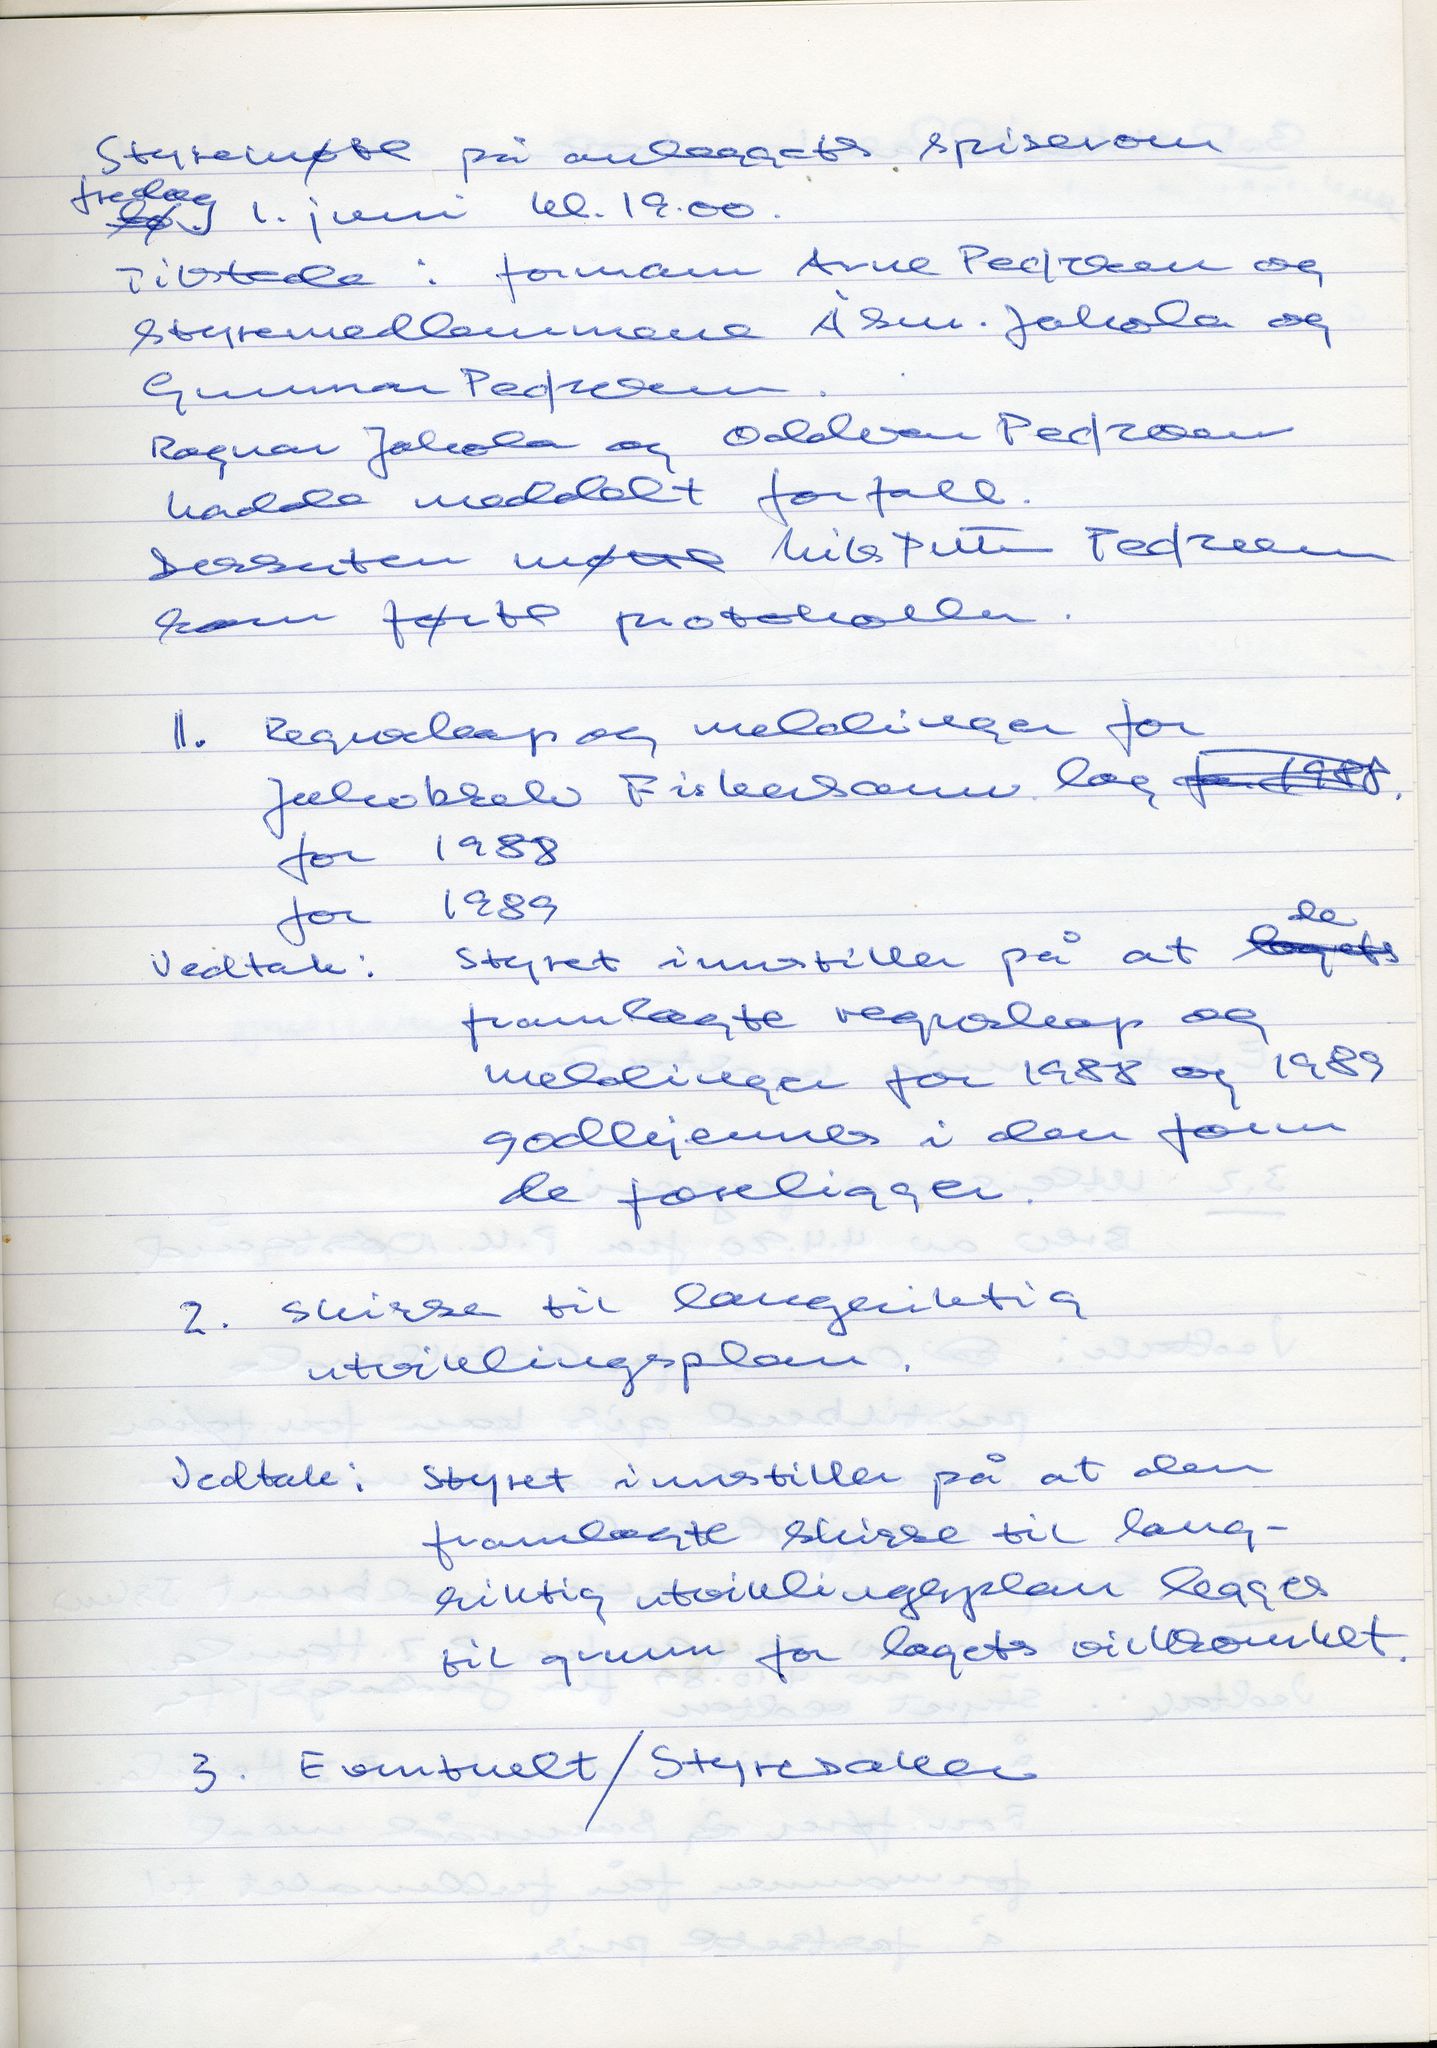 Styremøte på anleggets spiserom
fredag
1. juni kl. 19.00.
Tilstede: formann Arne Pedersen og
styremedlemmene Åsm. Jakola og
Gunnar Pedersen.
Ragnar Jakola og Oddvar Pedersen
hadde meddelt forfall.
Dessuten møtte Nils Petter Pedersen
som førte protokollen.
1. Regnskap og meldinger for
Jakobselv Fiskersamv. lag for 1988.
for 1988
for 1989
de
Vedtak: Styret innstiller på at lagets
framlagte regnskap og
meldinger for 1988 og 1989
godkjennes i den form
de foreligger.
2. Skisse til langsiktig
utviklingsplan.
Vedtak: Styret innstiller på at den
framlagte skisse til lang-
siktig utviklingsplan legges
til grunn for lagets virksomhet.
3. Eventuelt/Styresaker